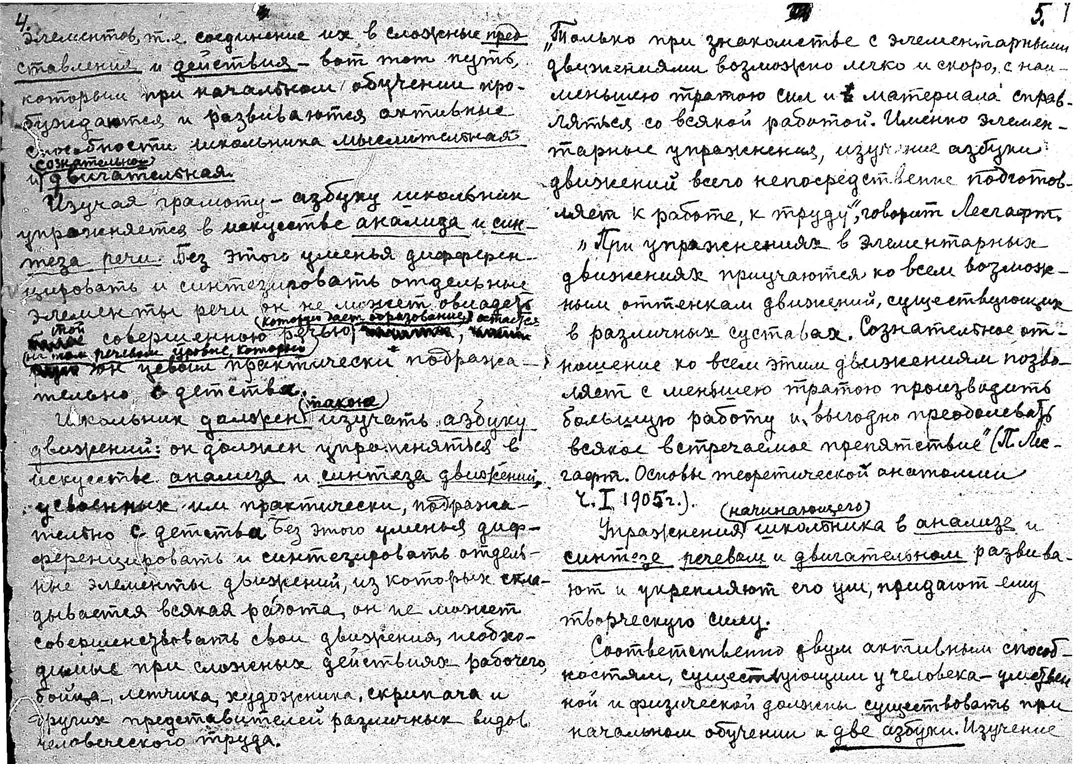 4.
элементов, т.е. соединение их в сложные пред-
ставления и действия – вот тот путь,
которым при начальном обучении про-
буждаются и развиваются активные
способности школьника мыслительная
(сознательной)
и двигательная.
Изучая грамоту – азбуку школьник
упражняется в искусстве анализа и син-
теза речи. Без этого уменья дифферен-
цировать и синтезировать отдельные
элементы речи он не может овладеть
(которую дает образование) остается
той совершенною речью,
на том речевом уровне, который
он усвоил практически подража-
тельно с детства.
(такоже)
Школьник должен изучать азбуку
движений: он должен упражняться в
искусстве анализа и синтеза движений,
усвоенных им практически, подража-
тельно с детства. Без этого уменья диф-
ференцировать и синтезировать отдель-
ные элементы движений, из которых скла-
дывается всякая работа, он не может
совершенствовать свои движения, необхо-
димые при сложных действиях рабочего,
бойца, летчика, художника, скрипача и
других представителей различных видов
человеческого труда.
5.
„Только при знакомстве с элементарными
движениями возможно легко и скоро, с наи-
меньшею тратою сил и материала справ-
ляться со всякой работой. Именно элемен-
тарные упражнения, изучение азбуки
движений всего непосредственнее подготов-
ляет к работе, к труду", говорит Лесгафт.
„При упражнениях в элементарных
движениях приучаются ко всем возмож-
ным оттенкам движений, существующих
в различных суставах. Сознательное от-
ношение ко всем этим движениям позво-
ляет с меньшею тратою производить
большую работу и выгодно преодолевать
всякое встречаемое препятствие" (П. Лес-
гафт. Основы теоретической анатомии
ч. I 1905 г.).
(начинающего)
Упражнения школьника в анализе и
синтезе речевом и двигательном развива-
ют и укрепляют его ум, придают ему
творческую силу.
Соответственно двум активным способ-
ностям, существующим у человека – умствен
ной и физической должны существовать при
начальном обучении и две азбуки. Изучение